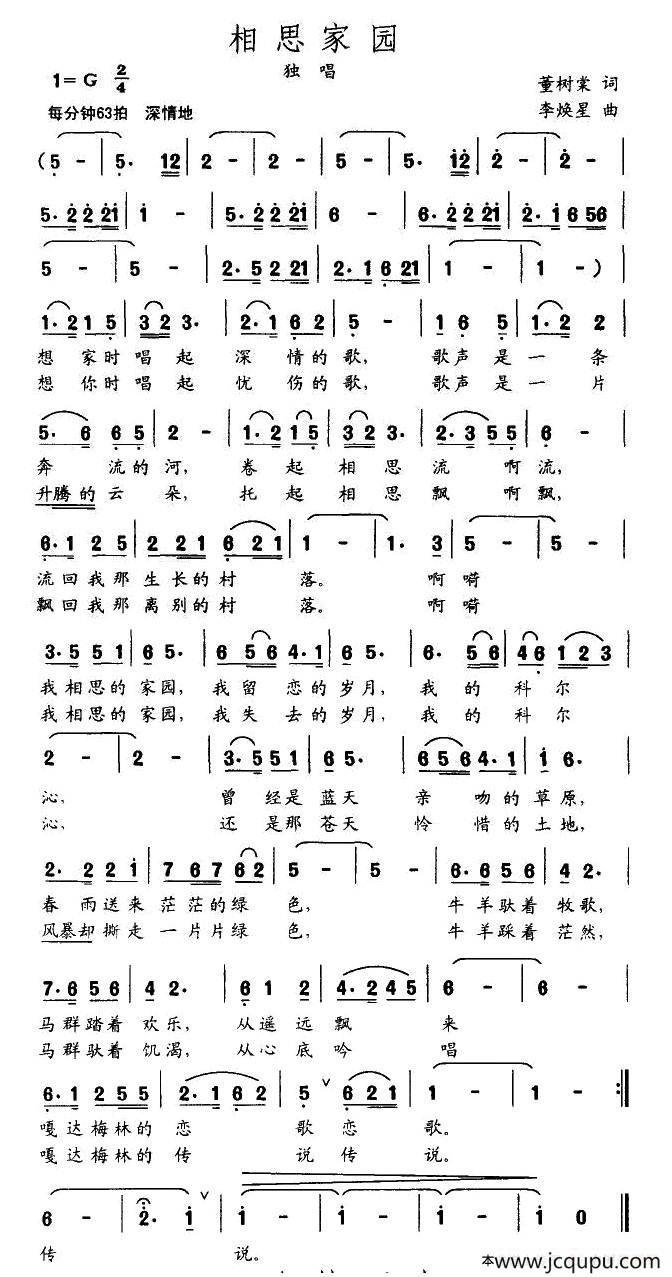 相思家园
独唱
1=G 2/4
董树棠 词
每分钟63拍 深情地
李焕星 曲
(5 - | 5· 12 | 2 - | 2 - | 5 - | 5· 12 | 2 - | 2 -
5·2 221 | 1 - | 5·2 221 | 6 - | 6·2 221 | 2·1 656
5 - | 5 - | 2·5 221 | 2·1 621 | 1 - | 1 - )
1·2 15 | 32 3· | 2·1 62 | 5 - | 1 6 5 | 1·2 2
想家时唱起 深情的歌, 歌声是一条
想你时唱起 忧伤的歌, 歌声是一片
5·6 65 | 2 - | 1·2 15 | 32 3· | 2·3 55 | 6 -
奔流的河, 卷起相思流啊流,
升腾的云朵, 托起相思飘啊飘,
6·1 25 | 2 21 621 | 1 - | 1· 3 | 5 - | 5 -
流回我那生长的村落。 啊嗬
飘回我那离别的村落。 啊嗬
3·5 51 | 65· | 6 56 4·1 | 65· | 6· 56 | 46 123
我相思的家园, 我留恋的岁月, 我的科尔
我相思的家园, 我失去的岁月, 我的科尔
2 - | 2 - | 3·5 551 | 65· | 656 4·1 | 1 6·
沁, 曾经是蓝天亲吻的草原,
沁, 还是那苍天怜惜的土地,
2· 2 2 1 | 7 67 62 | 5 - | 5 - | 6·6 56 | 4 2·
春雨送来茫茫的绿色, 牛羊驮着牧歌,
风暴却撕走一片片绿色, 牛羊踩着茫然,
7·6 56 | 4 2· | 6 1 2 | 4·2 45 | 6 - | 6 -
马群踏着欢乐, 从遥远飘来
马群驮着饥渴, 从心底吟唱
6·1 255 | 2·1 62 | 5 ∨ 621 | 1 - | 1 - :‖
嘎达梅林的恋歌恋歌。
嘎达梅林的传说传说。
6 - | 2· 1 ∨ | 1 - | 1 - | 1 - | 1 0 ‖
传说。
本www.jcqupu.com